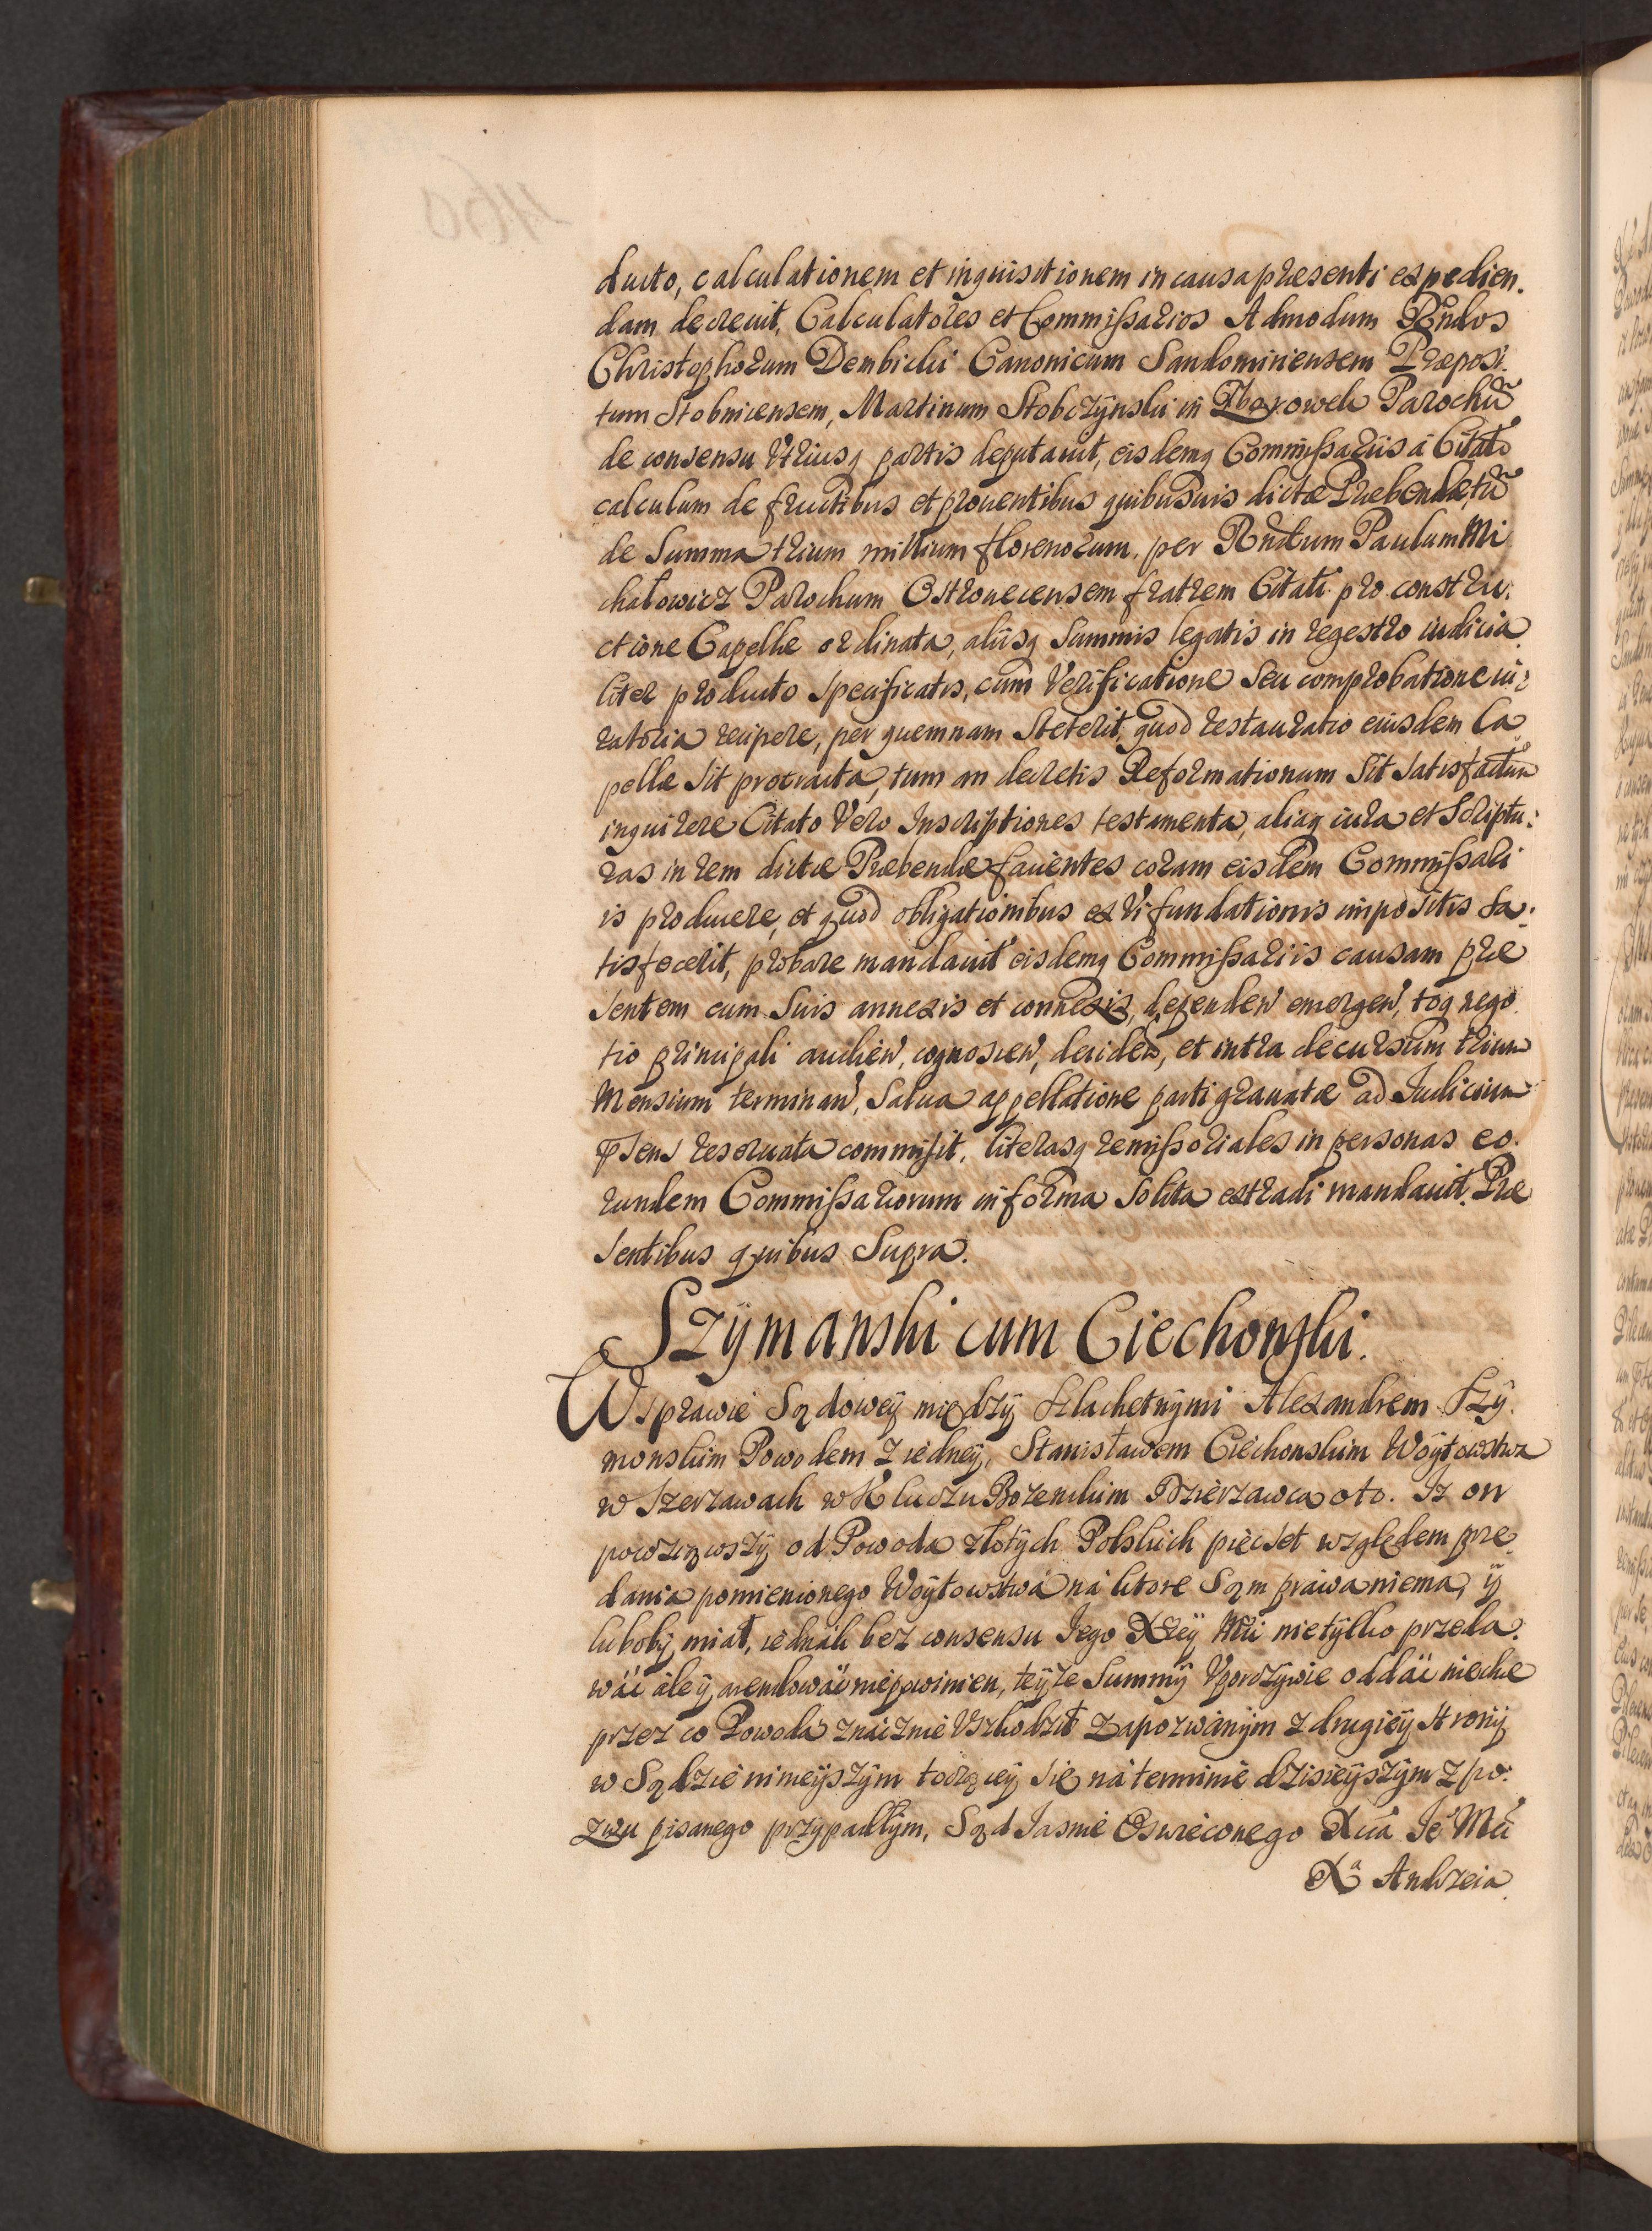 ducto, calculationem et inquisitionem in causa præsenti expedien.
dam decreuit, Calculatores et Commißarios Admodum Rndos
Christophorum Dembicki Canonicum Sandomiriensem Præposi.
tum Stobnicensem, Martinum Stobczÿnski in Parochũ
de consensu Vtriusq partis deputauit, eisdemq Commißariis a Citato
calculum de fructibus et prouentibus quibusuis dictæ Præbendæ, tũ
de Summa trium millium florenorum, per Rndum Paulum Mi
chałowicz Parochum Ostrouecensem fratrem Citati pro constru.
ctione Capellæ ordinata, aliisq Summis legatis in regestro iudicia
liter producto specificatis, cum Verificatione Seu comprobatione iu:
ratoria recipere, per quemnam Steterit, quod restauratio eiusdem Ca
pellæ sit protracta, tum an decretis Reformationum Sit Satisfactum
inquirere Citato Vero Inscriptiones testamenta, aliaq iura et Scriptu:
ras in rem dictæ Præbendæ fauentes coram eisdem Commißari
is producere, et quod obligationibus ex Vi fundationis impositis Sa.
tisfecerit, probare mandauit eisdemq Commißariis causam præ
sentem cum Suis annexis et connexis, dependen emergen, toq nego.
tio principali audien, cognoscen, deciden, et intra decursum trium
Mensium terminan, Salua appellatione parti grauatæ ad Iudicium
psens reseruata commisit, literasq remißoriales in personas eo.
rundem Commißariorum in forma Solita extradi mandauit. Præ
sentibus quibus Supra.
Szÿmanski cum Ciechonski.
W sprawie Sądoweÿ międzÿ Szlachetnÿmi Alexandrem Szÿ.
monskim Powodem z iedneÿ, Stanisławem Ciechonskim Woÿtowstwa
w Szerzawach w Kluczu Bozenckim Dzierzawca oto. Iz on
powziąwszÿ od Powoda złotÿch Polskich pięcset względem prze
dania pomienionego Woÿtowstwa na ktore Sąm prawa niema, ÿ
lubobÿ miał, iednak bez consensu Iego Xceÿ Mci nietÿlko przeda.
wać ale ÿ arendować niepowinien, teÿze Summÿ Vporczÿwie oddać niechce
przez co Powoda znacznie Vszkodził Zapozwanÿm z drugieÿ stronÿ
w Sądzie ninieÿszÿm toczączeÿ się na terminie dzisieÿszÿm z po:
zwu pisanego przÿpadłÿm, Sąd Iasnie Oswieconego Xcia Ie Mci
Xa Andrzeia